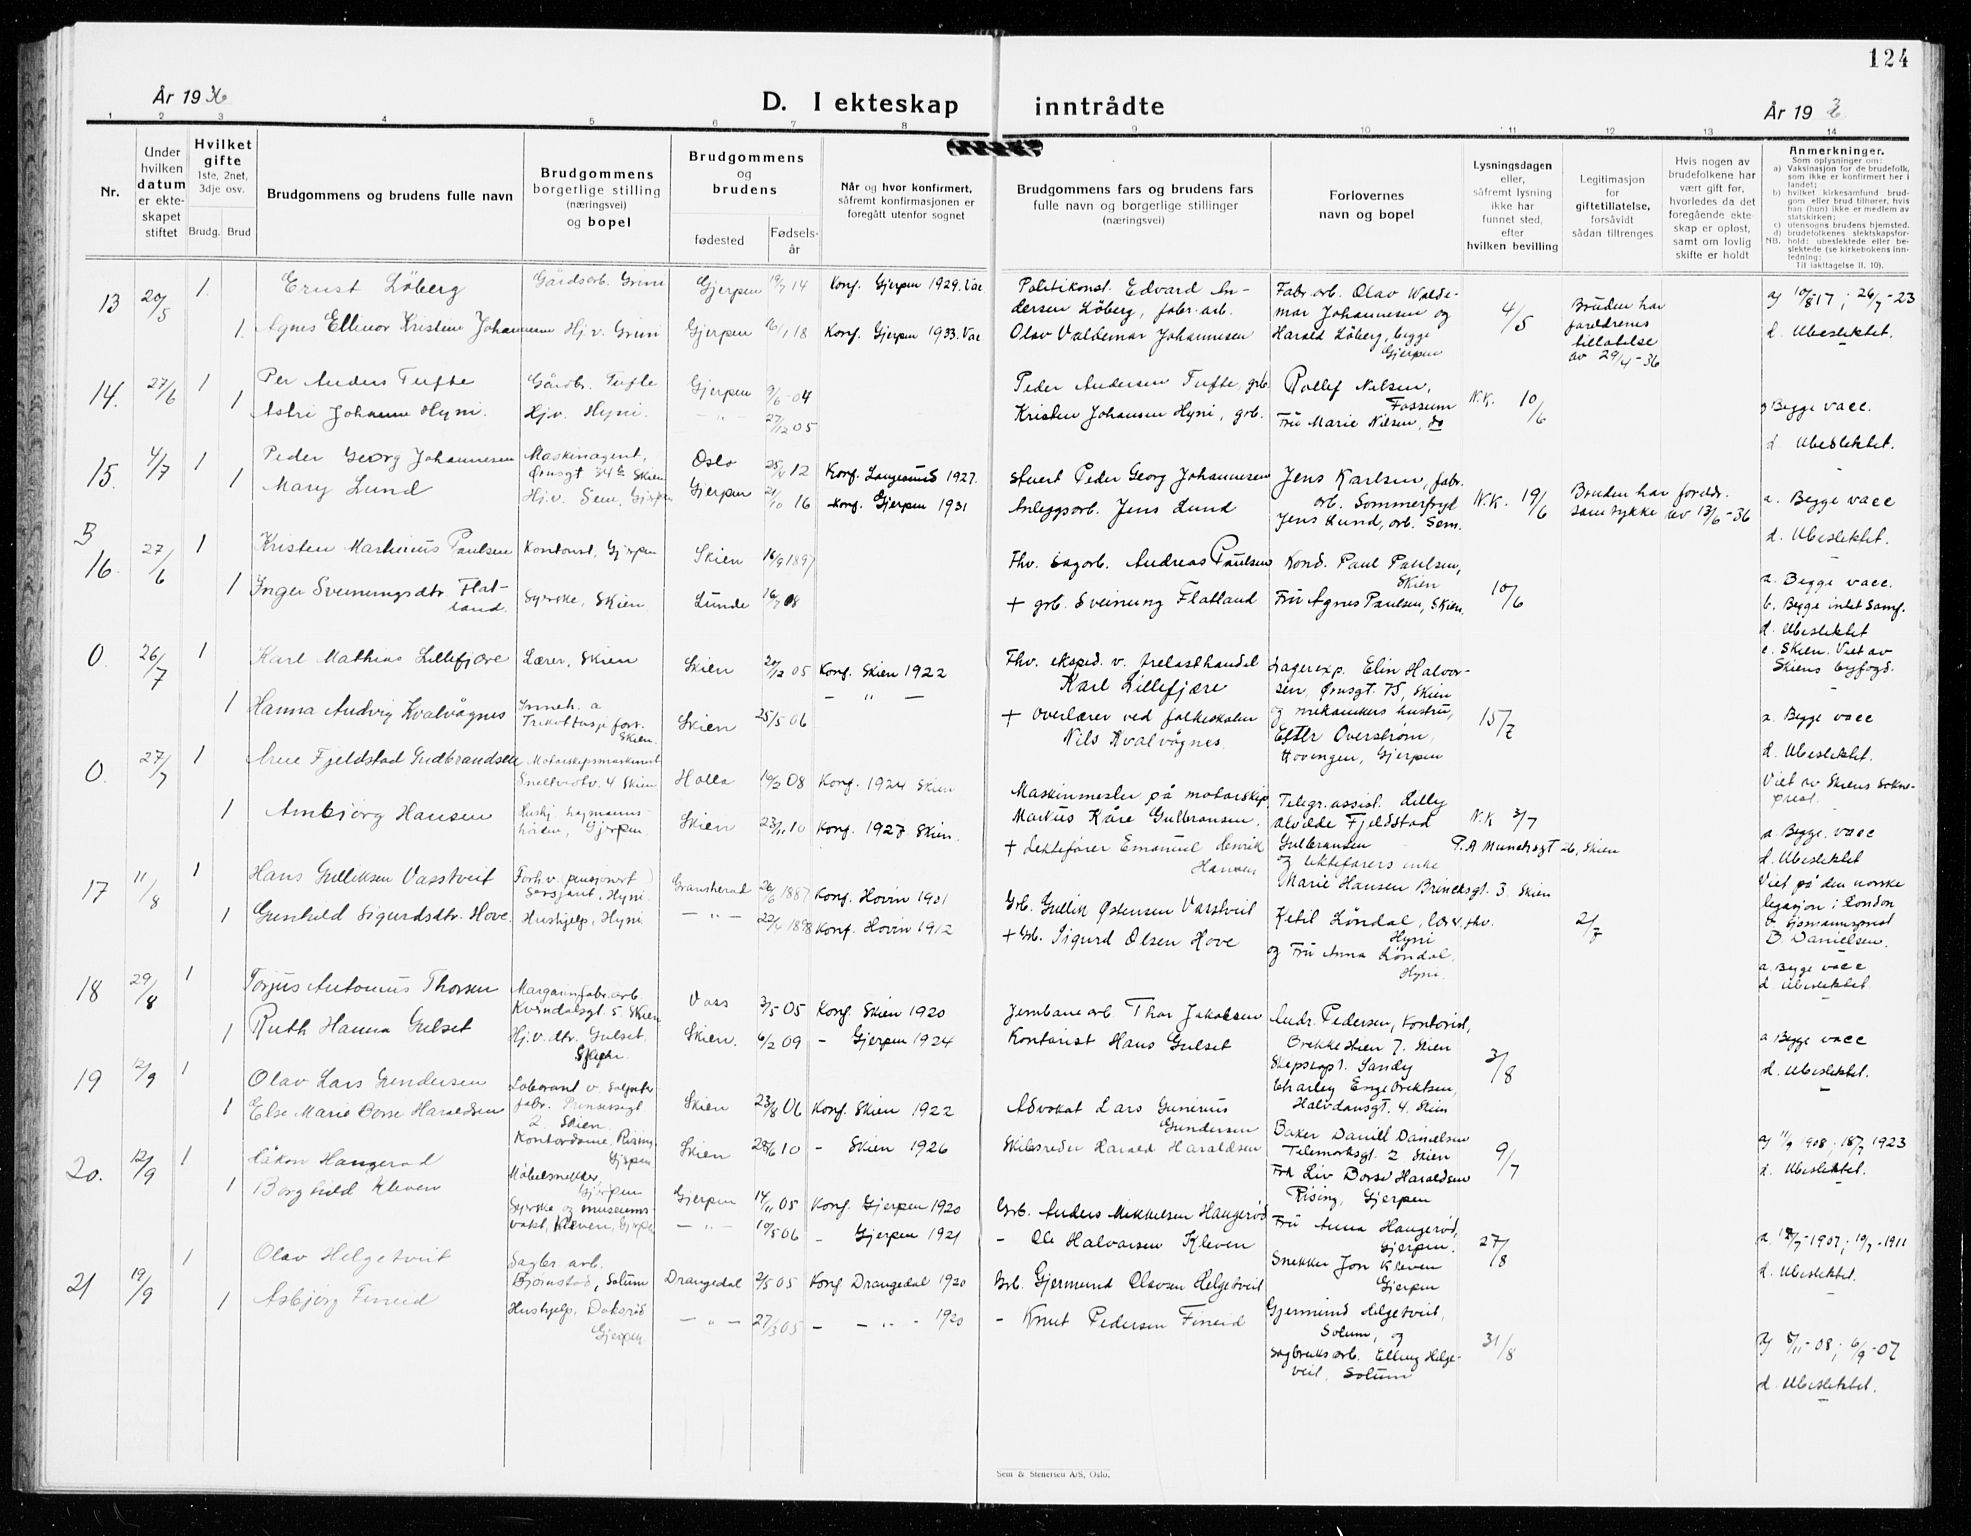 124
År 1936
D. I ekteskap inntrådte
År 193
1 2 3 4 5 6 7 8 9 10 11 12 13 14
Nr.
Under hvilken datum er ekteskapet stiftet
Hvilket gifte
1ste, 2net, 3dje osv.
Brudg. Brud
Brudgommens og brudens fulle navn
Brudgommens borgerlige stilling (næringsvei) og bopel
Brudgommens og brudens
fødested
Fødselsår
Når og hvor konfirmert, såfremt konfirmasjonen er foregått utenfor sognet
Brudgommens fars og brudens fars fulle navn og borgerlige stillinger (næringsvei)
Forlovernes navn og bopel
Lysningsdagen eller, såfremt lysning ikke har funnet sted, efter hvilken bevilling
Legitimasjon for giftetillatelse, forsåvidt sådan tiltrenges
Hvis nogen av brudefolkene har vært gift før, hvorledes da det foregående ekteskap er opløst, samt om lovlig skifte er holdt
Anmerkninger.
Som oplysninger om:
a) Vaksinasjon for de brudefolk, som ikke er konfirmert her i landet;
b) hvilket kirkesamfund brudgom eller brud tilhører, hvis han (hun) ikke er medlem av statskirken;
c) utensogns brudens hjemsted.
d) brudefolkenes slektskapsforhold: ubeslektede eller beslektede (se kirkebokens innledning;
NB. Til iakttagelse II, 10).
13 20/5 1. Ernst Löberg Gårdsarb. Grini Gjerpen 19/7 14 Konf. Gjerpen 1929. Vac
1. Agnes Ellinor Kristine Johannesen Hj.v. Grini Gjerpen 16/1 18 Konf. Gjerpen 1933. Vac
Politikonst. Edvard Andersen Löberg, fabr. arb.
Olav Valdemar Johannesen
Fabr. arb. Olav Waldemar Johannesen og
Harald Löberg, begge
Gjerpen
4/5
Bruden har
foreldrenes
tillatelse
av 29/4-36
a) 10/8 17; 26/7-23
d. Ubeslektet.
14. 27/6 1 Per Anders Tufte Gårdbr. Tufte Gjerpen 9/6-04
1 Astri Johanne Hyni. Hj.v. Hyni. - " - 27/12 05
Peder Andersen Tufte, grb.
Kristen Johansen Hyni, grb.
Rollef Nilsen,
Fossum
Fru Marie Nilsen, do
N.K. 10/6
a Begge vacc.
d Ubeslektet.
15. 4/7 1 Peder Georg Johannesen Maskinagent, Oslo 12 Konf. Langesund 1927.
Ørnsgt Skien
1 Mary Lund Hj.v. Sem, Gjerpen Gjerpen 21/10 16 Konf. Gjerpen 1931
Stuert Peder Georg Johannesen
Anleggsarb. Jens Lund
Jens Karlsen, fabr.
arb. Sommerfryd
Jens Lund, arb. Sem.
N.K. 19/6
Bruden har foreldr.
samtykke av 13/6-36
a. Begge vacc
d. Ubeslektet.
B
16. 27/6 1 Kristen Marthinius Paulsen Kontorist, Gjerpen Skien 16/9 1897
1 Inger Sveinungsdtr. Flatland. Syerske, Skien Lunde 16/7 08
Fhv. sagarb. Andreas Paulsen
+ grb. Sveinung Flatland
Kond. Paul Paulsen,
Skien
Fru Agnes Paulsen, Skien.
10/6
a. Begge vacc.
b. Begge intet samf.
d. Ubeslektet
c. Skien. Viet av
Skiens byfogd.
0. 26/7 1 Karl Mathias Lillefjære Lærer, Skien Skien 20/12 05 Konf. Skien 1922
1 Hanna Andvig Kvalvågnes Inneh. a Trikottasje forr. Skien. Skien 25/5 06 - " -
Fhv. eksped. v. trelasthandel
Karl Lillefjære
+ Overlærer ved folkeskolen
Nils Kvalvågnes.
Lagerexp. Elin Halvorsen, Ørnsgt. 75, Skien
og mekanikers hustru,
Esther Overstrøm,
Hovengen, Gjerpen
15/7
a. Begge vacc
d. Ubeslektet.
Viet av Skiens Sokneprest.
0. 27/7 1 Arne Fjeldstad Gudbrandsen Motorskipsmaskinist Holla 19/2 08 Konf. 1924 Skien
4 Skien
1 Ambjörg Hansen Gjerpen. Skien 23/11 10 Konf. 1927 Skien.
Maskinmester på motorskip
Markus Kåre Gulbransen.
+ Lektefører Emanuel Henrik
Hansen
Telegr. assist. Lilly
Alvilde Fjeldstad
Gulbransen
og lektefører enke
Marie Hansen Brinchsgt. 3. Skien
N.K 3/7
P.A Munchsgt 26, Skien
a. Begge. vacc
d. Ubeslektet
Viet på den norske
legasjon i London
av sjømannsprest
B. Danielsen.
17 11/8 1 Hans Gulliksen Vasstveit Forh.v. (pensjonert) Sersjant, Hyni. Gransherad 26/6 1887 Konf. Hovin 1901
1 Gunhild Sigurdsdtr. Hove. Hushjelp, Hyni - " - 22/4 1898 Konf. Hovin 1912
Grb. Gullik Østensen Vasstveit
+ Grb. Sigurd Olsen Hove
Ketil Löndal, lærer, fhv.
Hyni
og Fru Anna Löndal,
Hyni.
2/7
a. Begge vacc
d Ubeslektet.
18 29/8 1 Torjus Antonius Thorsen Margarinfabr. arb. Kverndalsgt. 5 Skien Voss 3/5 05 Konf. Skien 1920
1 Ruth Hanna Gulset Hj.v. dtr. Gulset, Skien. 6/2 09 - Gjerpen 1924
Jernbanearb Thor Jakobsen
Kontorist Hans Gulset
Andr. Pedersen, Kontorist,
Brekke 7. Skien
Charley Engebrektsen,
Halvdansgt. 4. Skien
3/8
a Begge vacc
d. Ubeslektet.
19 12/9 1 Olav Lars Gundersen Laborant v. Salpeterfabr. Prinsessegt 2 Skien. Skien 23/8 06 Konf. Skien 1922
1 Else Marie Dorse Haraldsen Kontordame. Rising, Gjerpen Skien 28/6 10 - Skien 1926
Advokat Lars Gunerius
Gundersen
Skibsreder Harald Haraldsen
Baker Daniel Danielsen
Telemarksgt. 2 Skien
Frk Liv Dorse Haraldsen
Rising, Gjerpen
9/7
a) 11/9 1908; 18/7 1923
d. Ubeslektet.
20. 12/9 1 Håkon Hangerød Møbelsnekker, Gjerpen Gjerpen 14/11 05 Konf. Gjerpen 1920
1 Borghild Kleven Syerske og museumsvakt, Kleven, Gjerpen - " - 19/5 06 - Gjerpen 1921
Grb. Anders Mikkelsen Hangerød
- Ole Halvorsen Kleven
Fru Anna Hangerød,
Gjerpen.
Snekker Jon Kleven
Gjerpen
27/8
a. 1907; 19/7-1911
d. Ubeslektet.
21 19/9 1 Olav Helgetveit Sagbr. arb. Bjørnstad, Solum Drangedal 2/5 05 Konf Drangedal 1920
1 Asbjörg Fineid Hushjelp, Gjerpen - " - 27/3 05 - - " - 1920
Grb. Gjermund Olavsen Helgetveit
- Knut Pedersen Fineid
Gjermund Helgetveit,
Solum, og
Sagbruksarb. Elling Helgeveit, Solum
31/8
a) 8/11-08; 6/9-07
d. Ubeslektet.
Sem & Stenersen A/S, Oslo.